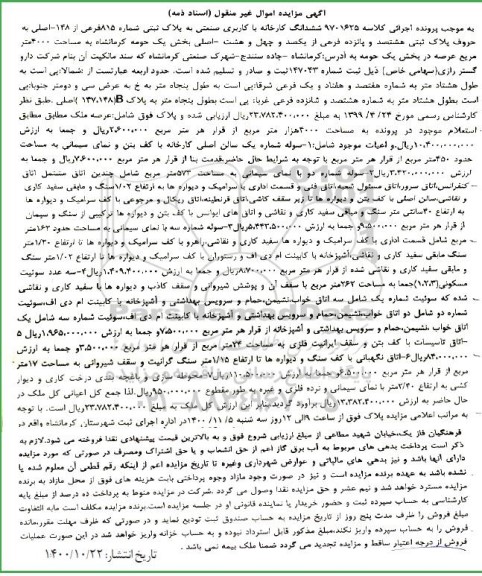 آگهی مزایده اموال غیر منقول (اسناد ذمه)
به موجب پرونده اجرائی کلاسه ۹۷۰۱۶۲۵ ششدانگ کارخانه با کاربری صنعتی به پلاک ثبتی شماره ۸۱۵فرعی از ۱۴۸-اصلی به
حروف پلاک ثبتی هشتصد و پانزده فرعی از یکصد و چهل و هشت -اصلی بخش یک حومه کرمانشاه به مساحت ۴۰۰۰متر
مربع عرصه در بخش یک حومه به آدرس:کرمانشاه -جاده سنندج-شهرک صنعتی کرمانشاه که سند مالکیت آن بنام شرکت دارو
گستر رازی(سهامی خاص) ذیل ثبت شماره ۱۴۷۰۴۳ثبت و صادر و تسلیم شده است. حدود اربعه عبارتست از :شمالا:پی است به
طول هشتاد متر به شماره هفتصد و هفتاد و یک فرعی شرقا:پی است به طول پنجاه متر به خ به عرض سی و دومتر جنوبا:پی
است بطول هشتاد متر به شماره هشتصد و شانزده فرعی غربا: پی است بطول پنجاه متر به پلاک B(۱۳۷،۱۴۸)اصلی .طبق نظر
کارشناس رسمی مورخ ۱۳۹۹/۴/۲۴ به مبلغ ۲۳،۷۸۲،۴۰۰،۰۰۰ریال ارزیابی شده و پلاک فوق شامل:عرصه ملک مطابق مطابق
استعلام موجود در پرونده به مساحت ۴۰۰۰هزار متر مربع از قرار هر متر مربع ۲،۶۰۰،۰۰۰ریال و جمعا به ارزش
۱۰،۴۰۰،۰۰۰،۰۰۰ریال.و اعیات موجود شامل:۱-سوله شماره یک سالن اصلی کارخانه با کف بتن و نمای سیمانی به مساحت
حدود ۴۵۰متر مربع از قرار هر متر مربع با توجه به شرایط حال حاضر،قدمت بنا از قرار هر متر مربع ۷،۶۰۰،۰۰۰ریال و جمعا به
ارزش ۳،۴۲۰،۰۰۰،۰۰۰ریال۲-سوله شماره دو با نمای سیمانی به مساحت ۵۷۳متر مربع شامل چندین اتاق مشتمل اتاق
کنفرانس،اتاق سرور،اتاق مسئول شعبه،اتاق فنی و قسمت اداری با سرامیک و دیواره ها به ارتفاع ۱/۰۲سنگ و مابقی سفید کاری
و نقاشی،سالن اصلی با کف بتن و دیواره ها تا زیر سقف کاشی،اتاق قرنطینه،اتاق ریکال و مرجوعی با کف سرامیک و دیواره ها
به ارتفاع ۴۰سانتی متر سنگ و مباقی سفید کاری و نقاشی و اتاق های ایوانس با کف بتن و دیواره ها ترکیبی از سنگ و سیمان
از قرار هر متر مربع ۹،۵۰۰،۰۰۰و جمعا به ارزش ۵،۴۴۳،۵۰۰،۰۰۰ریال۳-سوله شماره سه با نمای سیمانی به مساحت حدود ۱۶۲متر
مربع شامل قسمت اداری با کف سرامیک و دیواره ها سفید کاری و نقاشی،راهرو با کف سرامیک و دیواره ها تا ارتفاع ۱/۳۰متر
سنگ مابقی سفید کاری و نقاشی،آشپزخانه با کابینت ام دی اف و رستوران با کف سرامیک و دیواره ها تا ارتفاع ۱/۰۲متر سنگ
و مابقی سفید کاری و نقاشی شده از قرار هر متر مربع ۸،۷۰۰،۰۰۰ریال و جمعا به ارزش ۱،۴۰۹،۴۰۰،۰۰۰ریال۴-سه عدد سوئیت
مسکونی(۱،۲،۳)جمعا به مساحت ۲۶۲متر مربع با سقف آن و پوشش شیروانی و سقف کاذب و دیواره ها با سفید کاری و نقاشی
شده که سوئیت شماره یک شامل سه اتاق خواب،نشیمن،حمام و سرویس بهداشتی و آشپزخانه با کابینت ام دی اف،سوئیت
شماره دو شامل دو اتاق خواب،نشیمن،حمام و سرویس بهداشتی و آشپزخانه با کابینت ام دی اف،سوئیت شماره سه شامل یک
اتاق خواب ،نشیمن،حمام و سرویس بهداشتی و آشپزخانه از قرار هر متر مربع ۷،۵۰۰،۰۰۰و جمعا به ارزش ۱،۹۶۵،۰۰۰،۰۰۰ریال ۵
-اتاق تاسیسات با کف بتن و سقف ایرانیت فلزی به مساحت ۲۴متر مربع از قرار هر متر مربع ۳،۵۰۰،۰۰۰و جمعا به ارزش
۸۴،۰۰۰،۰۰۰ریال۶-اتاق نگهبانی با کف سنگ و دیواره ها تا ارتفاع ۱/۱۵متر سنگ گرانیت و سقف شیروانی به مساحت ۱۷متر
مربع از قرار هر متر مربع ۶،۵۰۰،۰۰۰و جمعا به ارزش ۱۱۰،۵۰۰،۰۰۰ریال۷-محوطه سازی و باغچه بندی درخت کاری و دیوار
کشی به ارتفاع ۲/۴۰متر با نمای سیمانی و نرده فلزی و غیره به طور مقطوع ۹۵۰،۰۰۰،۰۰۰ریال.لذا جمع کل اعیانی کل ملک در
حال حاضر به ارزش ۱۳،۳۸۲،۴۰۰،۰۰۰ریال برآورد گردید.بنابر این ارزش کل ملک به مبلغ ۲۳،۷۸۲،۴۰۰،۰۰۰ریال است. با توجه
به مراتب اعلامی مزایده پلاک فوق از ساعت ۹الی ۱۲روز سه شنبه ۱۴۰۰/۱۱/۵ در اداره اجرای ثبت شهرستان. کرمانشاه واقع در
فرهنگیان فاز یک،خیابان شهید مطاعی از مبلغ ارزیابی شروع فوق و به بالاترین قیمت پیشنهادی نقدا فروخته می شود.لازم به
ذکر است پرداخت بدهی های مربوط به آب برق گاز اعم از حق انشعاب و یا حق اشتراک ومصرف در صورتی که مورد مزایده
دارای آنها باشد و نیز بدهی های مالیاتی و عوارض شهرداری وغیره تا تاریخ مزایده اعم از اینکه رقم قطعی آن معلوم شده یا
نشده باشد به عهده برنده مزایده است و نیز در صورت وجود مازاد وجوه پرداختی بابت هزینه های فوق از محل مازاد به برنده
مزایده مسترد خواهد شد و نیم عشر و حق مزایده نقدا وصول می گردد .شرکت در مزایده منوط به پرداخت ده درصد از مبلغ پایه
کارشناسی به حساب سپرده ثبت و حضور خریدار یا نماینده قانونی او در جلسه مزایده است.برنده مزایده مکلف است مابه التفاوت
مبلغ فروش را ظرف مدت پنج روز از تاریخ مزایده به حساب صندوق ثبت تودیع نماید و در صورتی که ظرف مهلت مقرر،مانده
فروش را به حساب سپرده واریز نکند،مبلغ مذکور قابل استرداد نبوده و به حساب خزانه واریز خواهد شد در این صورت عملیات
فروش از درجه اعتبار ساقط و مزایده تجدید می گردد ضمنا ملک بیمه نمی باشد .
تاریخ انتشار: ۱۴۰۰/۱۰/۲۲